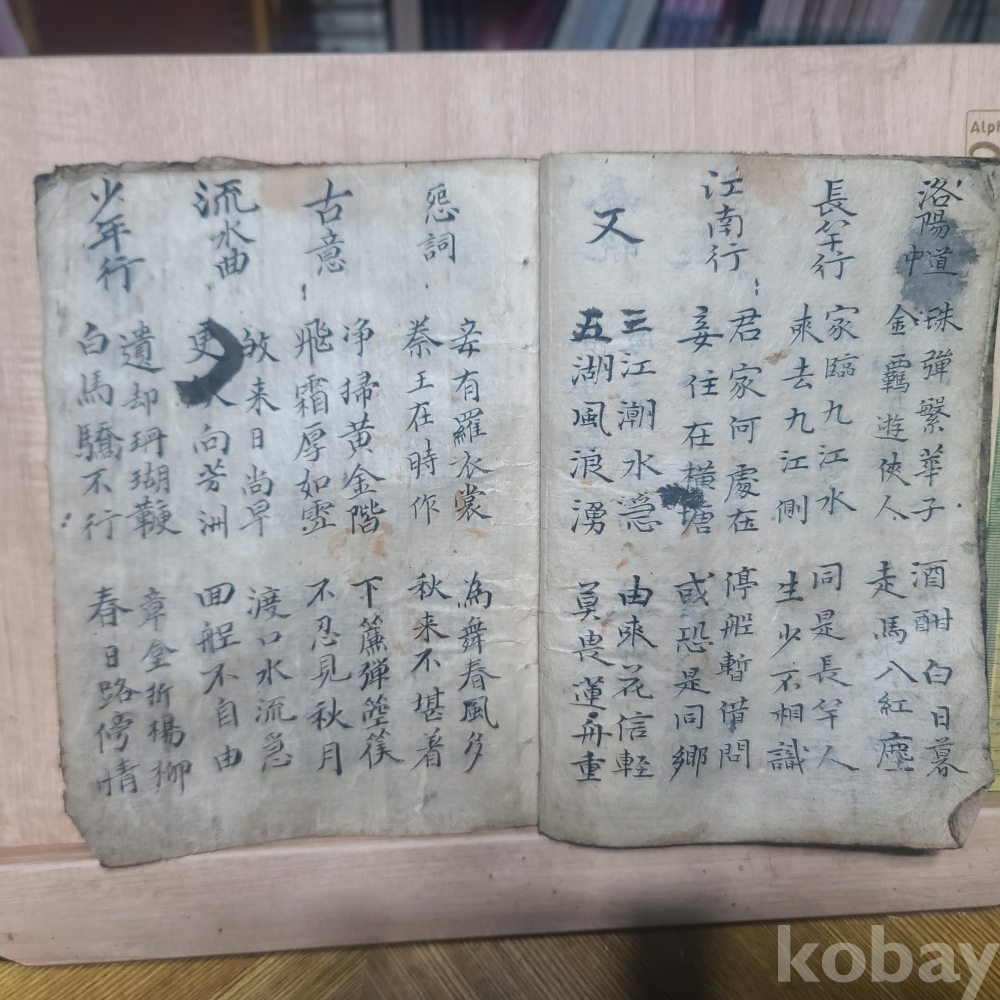 洛陽道中
珠彈繁華子
金羈遊俠人
酒酣白日暮
走馬入紅塵
長干行
家臨九江水
來去九江側
同是長干人
生少不相識
江南行
君家何處在
妾住在橫塘
停船暫借問
或恐是同鄉
又
三江潮水急
五湖風浪湧
由來花信輕
莫畏蓮舟重
怨詞
妾有羅衣裳
秦王在時作
為舞春風多
秋來不堪着
古意
净掃黃金階
飛霜厚如雪
下簾彈箜篌
不忍見秋月
流水曲
來日尚早
更向芳洲
渡口水流急
回船不自由
少年行
遺却珊瑚鞭
白馬驕不行
章臺折楊柳
春日路傍情
Alph
kobay